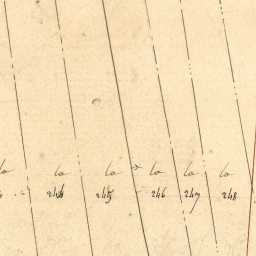 la la la la la la
244 245 246 247 248